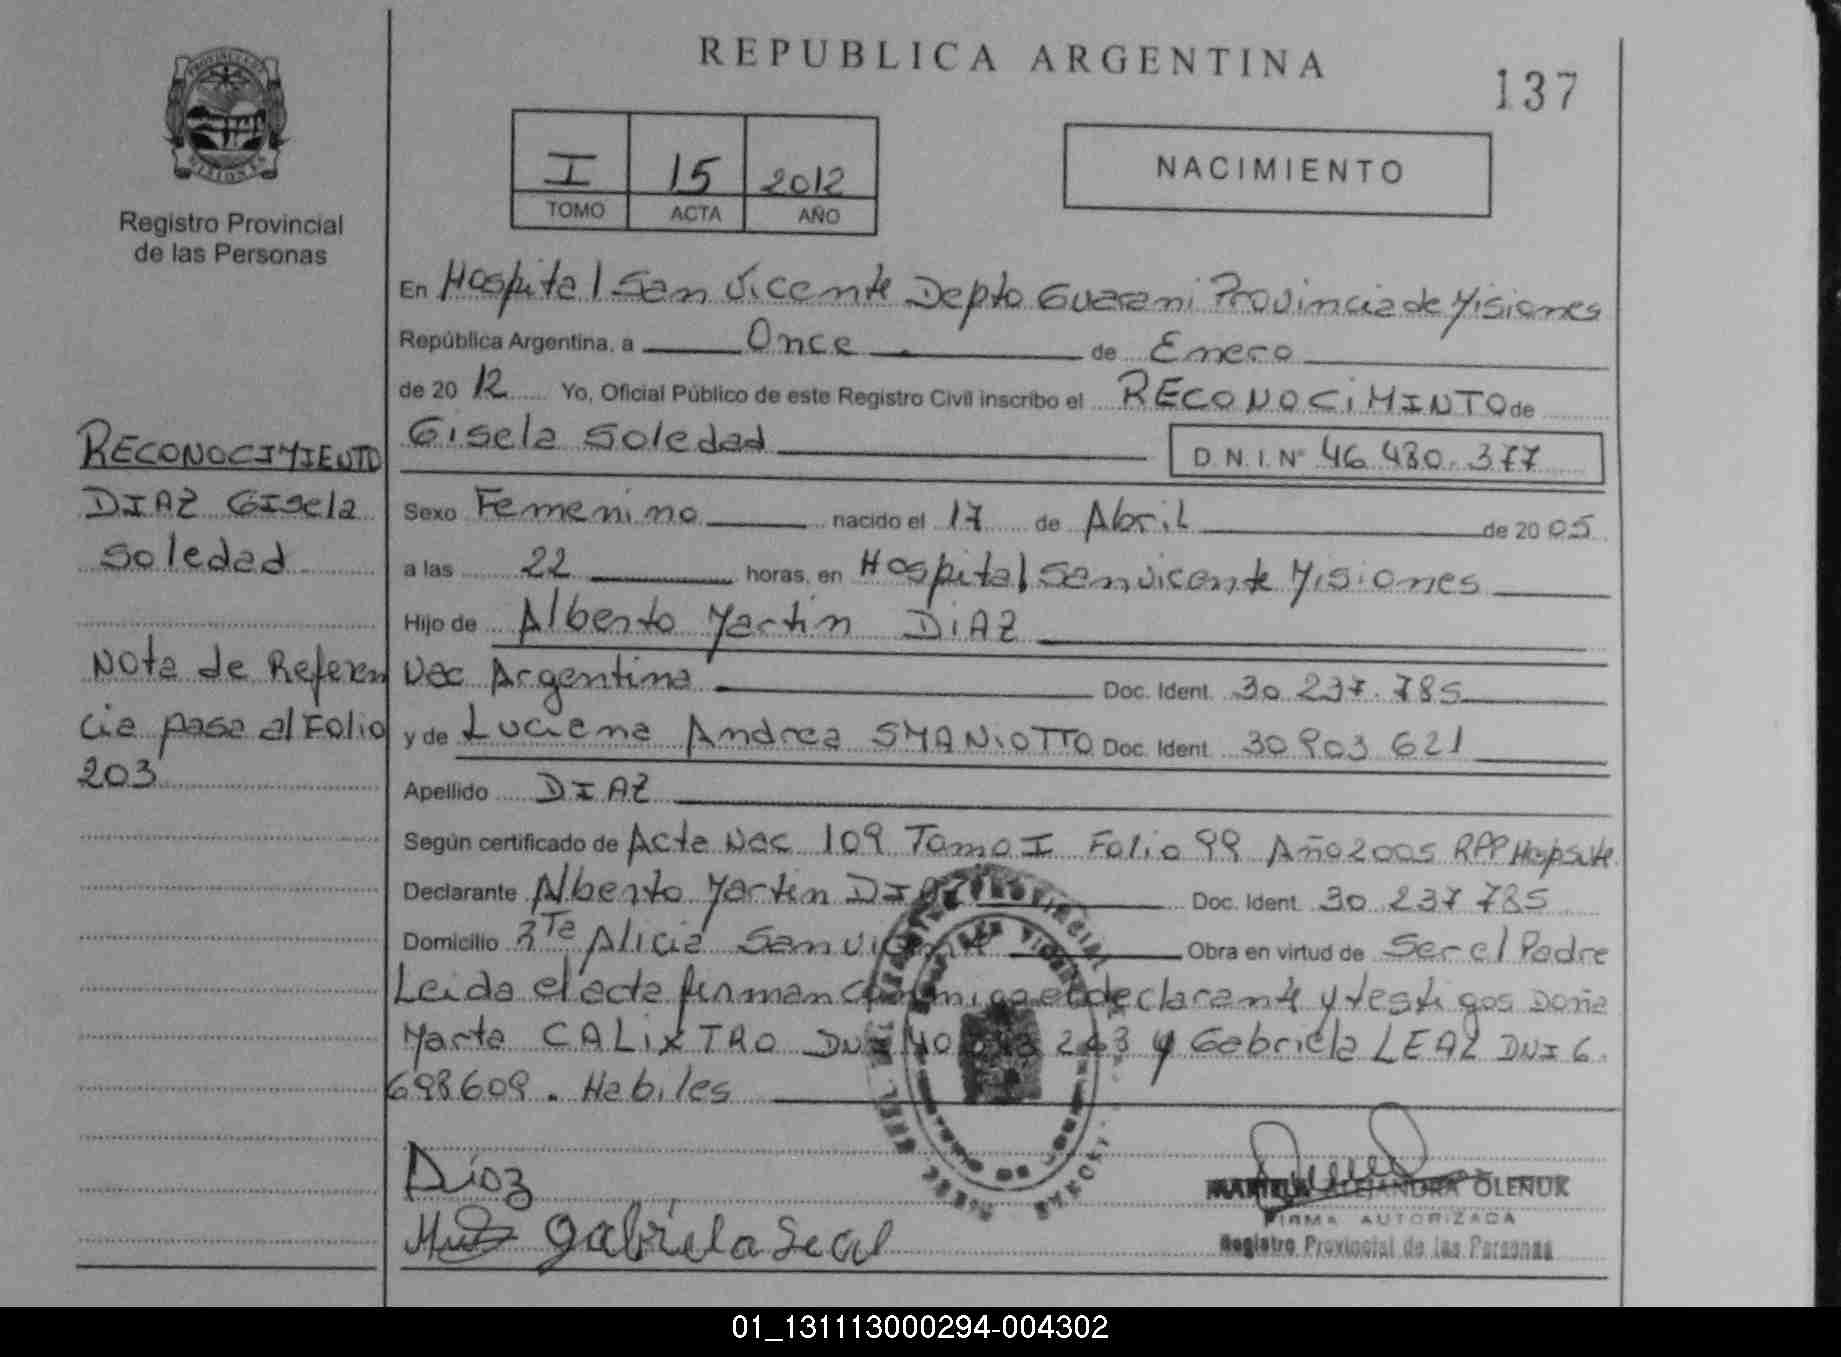 PROVINCIA DE
MISIONES
Registro Provincial
de las Personas
RECONOCIMIENTO
DIAZ GISela
Soledad
Nota de Referen
cia pasa al Folio
203
REPUBLICA ARGENTINA
137
I 15 2012
TOMO ACTA AÑO
NACIMIENTO
En Hospital San Vicente Depto Guarani Provincia de Misiones
República Argentina, a Once de Enero
de 20 12 Yo, Oficial Público de este Registro Civil inscribo el RECONOCIMINTO de
Gisela Soledad D.N.I. Nº 46.480.377
Sexo Femenino nacido el 17 de Abril de 20 05
a las 22 horas, en Hospital San Vicente Misiones
Hijo de Alberto Martin DIAZ
Nac Argentina Doc. Ident. 30.237.785
y de Luciena Andrea SMANIOTTO Doc. Ident. 30 903 621
Apellido DIAZ
Según certificado de Acta Nac 109 Tomo I Folio 99 Año 2005 RPP
Declarante Alberto Martin DIAZ Doc. Ident. 30 237 785
Domicilio Alicia San Vicente Obra en virtud de Ser el Padre
Leida el acta firman conmigo el declarante y testigos Doña
Marta CALIXTRO DNI 40 243 y Gabriela LEAL DNI 6.
698609. Habiles
Díaz
Gabriela Leal
ALEJANDRA OLENUK
FIRMA AUTORIZADA
Registro Provincial de las Personas
01_131113000294-004302